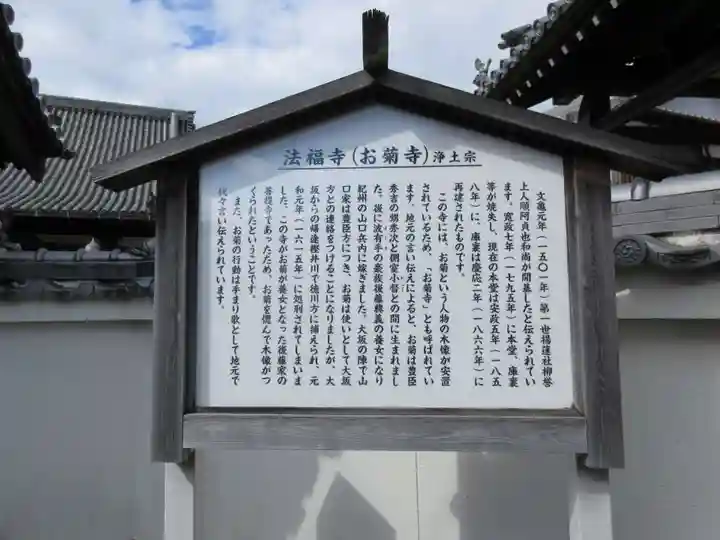 法福寺(お菊寺)浄土宗
文亀元年(一五〇一年)第一世揚蓮社柳誉
上人順阿貞也和尚が開基したと伝えられてい
ます。寛政七年(一七九五年)に本堂、庫裏
等が焼失し、現在の本堂は安政五年(一八五
八年)に、庫裏は慶応二年(一八六六年)に
再建されたものです。
この寺には、お菊という人物の木像が安置
されているため、「お菊寺」とも呼ばれてい
ます。地元の言い伝えによると、お菊は豊臣
秀吉の甥秀次と側室小督との間に生まれまし
た。後に波有手の豪族後藤興義の養女になり
紀州の山口兵内に嫁ぎました。大坂の陣で山
口家は豊臣方につき、お菊は使いとして大坂
方との連絡をつけることになりましたが、大
坂からの帰途樫井川で徳川方に捕えられ、元
和元年(一六一五年)に処刑されてしまいま
した。この寺がお菊が養女となった後藤家の
菩提寺であったため、お菊を偲んで木像がつ
くられたということです。
また、お菊の行動は手まり歌として地元で
代々言い伝えられています。